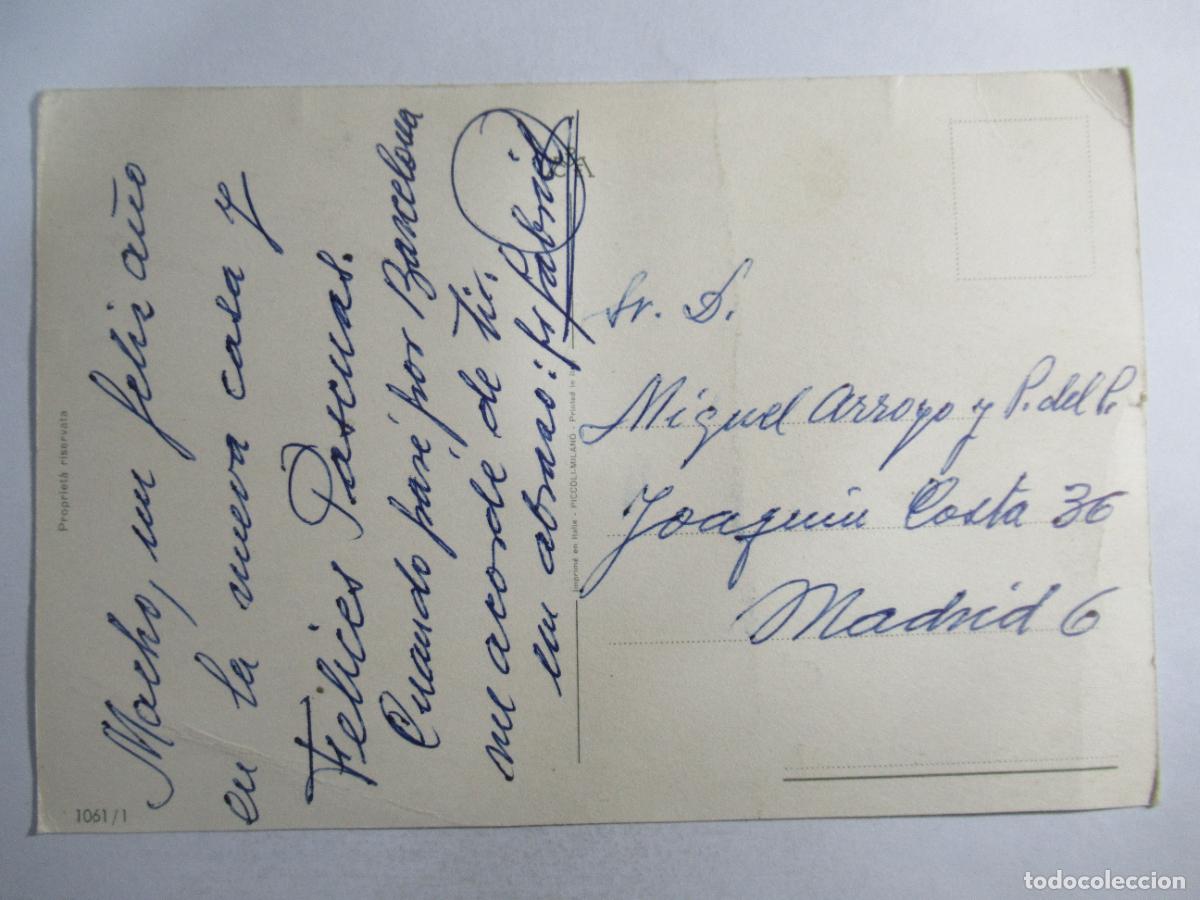 Macho, un feliz año
en la nueva casa y
Felices Pascuas.
Cuando pasé por Barcelona
me acordé de ti.
un abrazo: Gabriel
Sr. D.
Miguel Arroyo y P. del P.
Joaquin Costa 36
Madrid 6
Proprietà riservata
1061/1
Imprimé en Italie - PICCOLI-MILANO - Printed in
todocoleccion